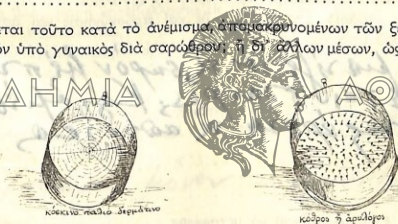 εται τοῦτο κατὰ τὸ ἀνέμισμα, ἀπομακρυνομένων τῶν ξ
ον ὑπὸ γυναικὸς διὰ σαρώθρου; ἢ δι' ἄλλων μέσων, ὡς
ΔΗΜΙΑ ΑΘ
κόσκινο παλιὸ δερμάτινο
κόθρος ἢ ἀρυλόγος